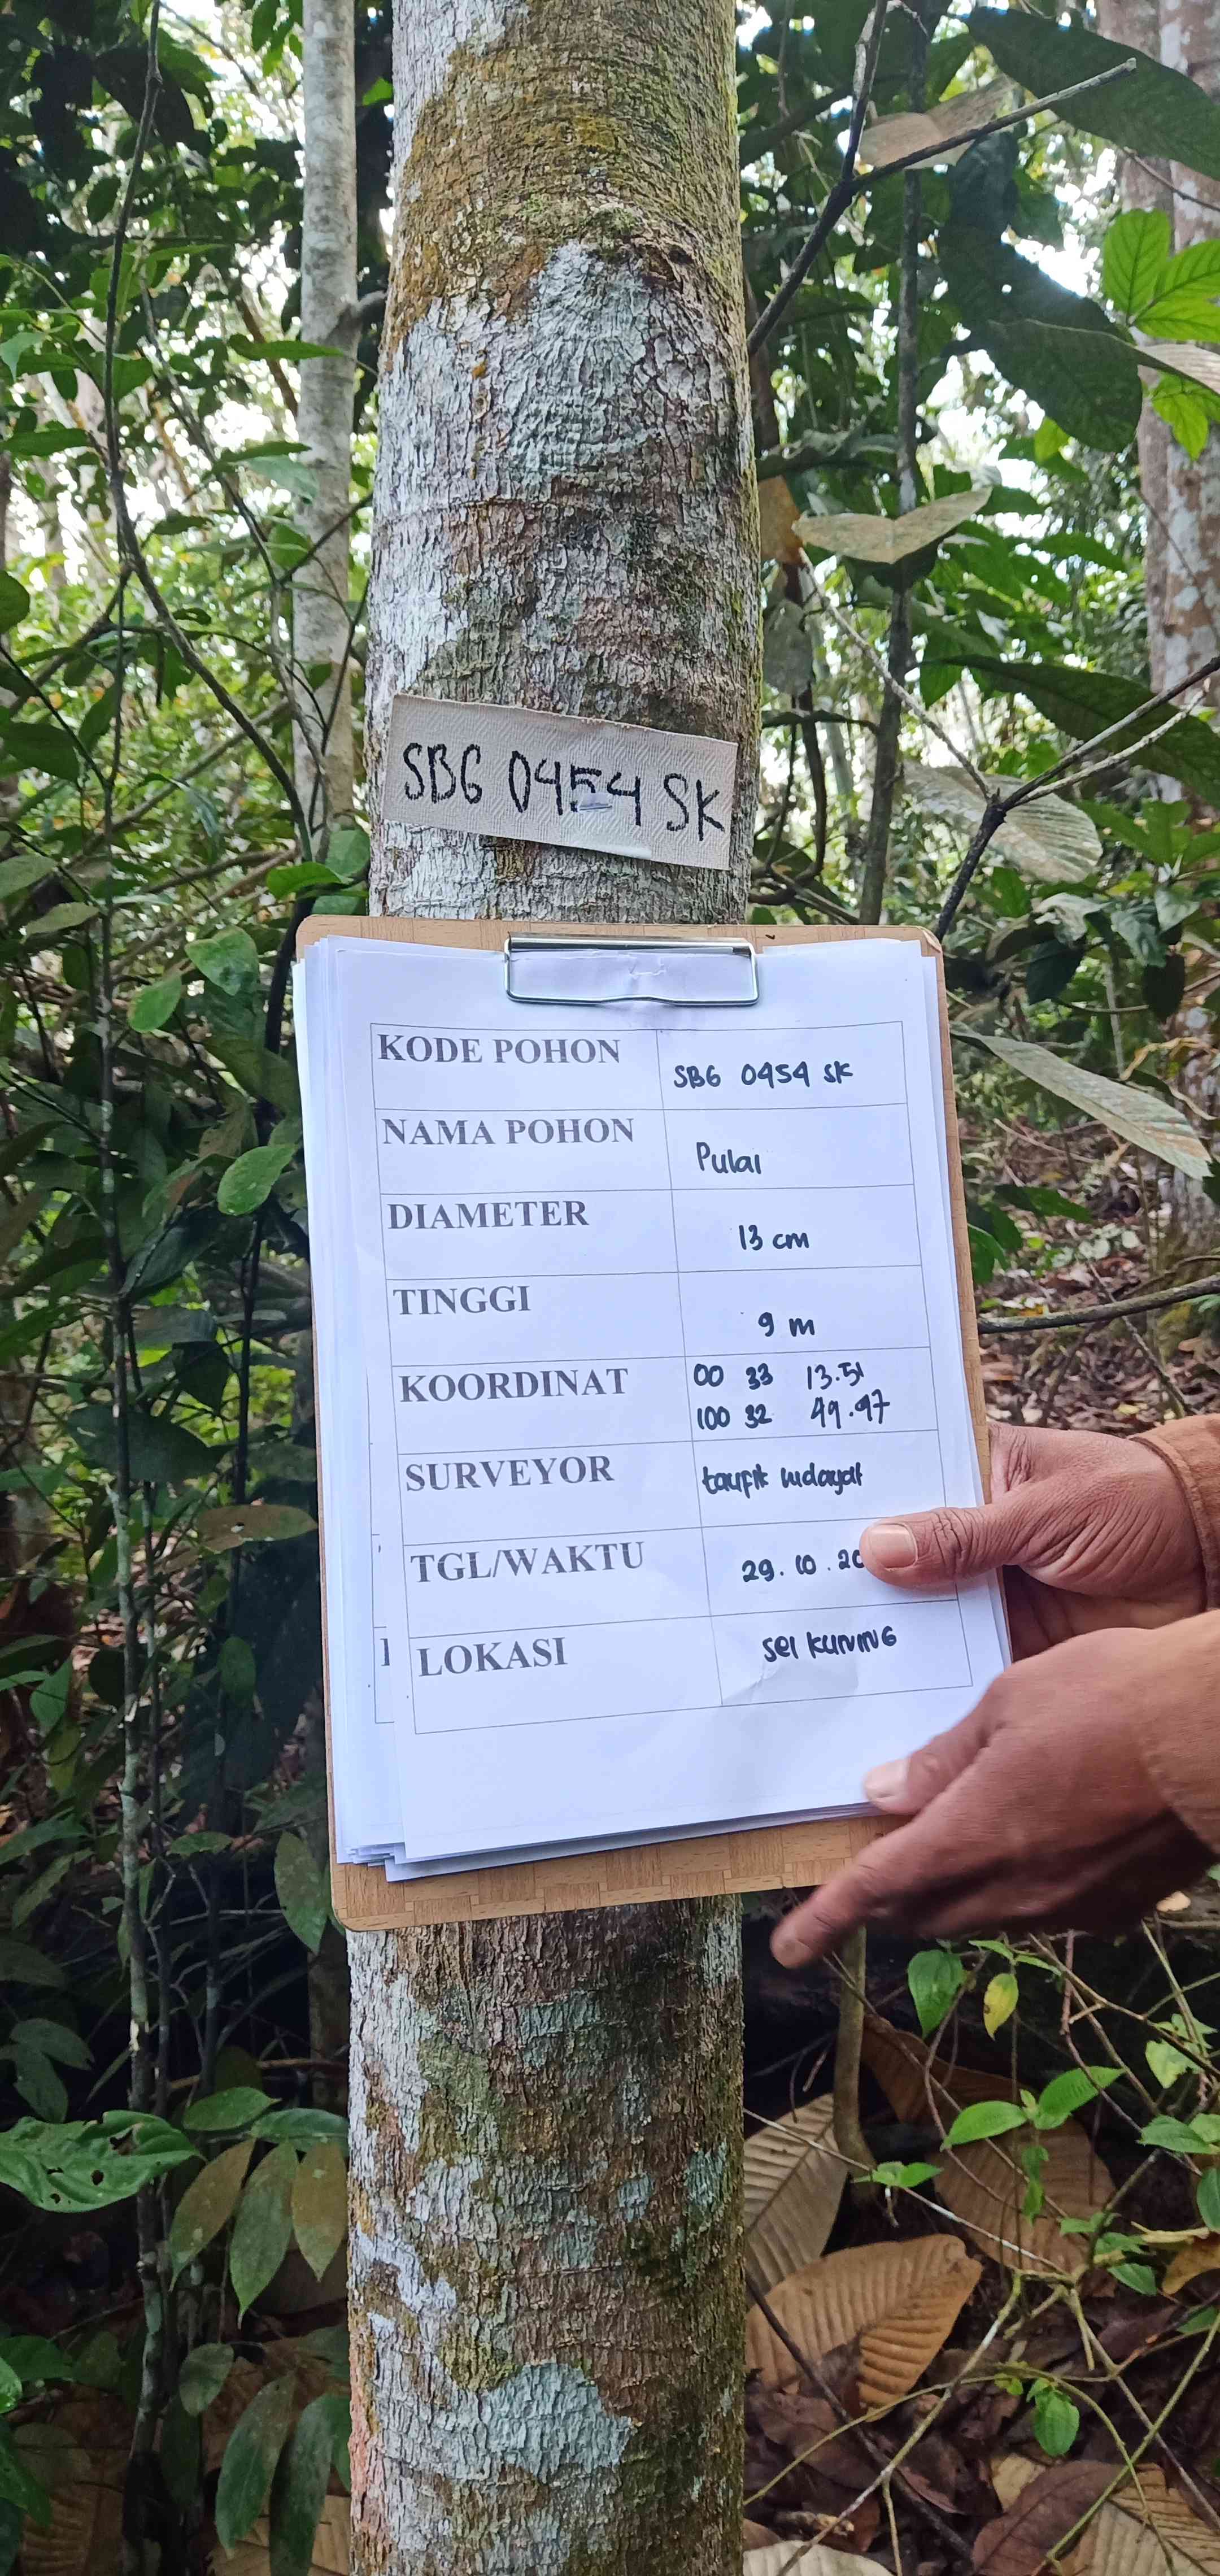 SBG 0454 SK
KODE POHON SBG 0454 SK
NAMA POHON Pulai
DIAMETER 13 cm
TINGGI 9 m
KOORDINAT 00 33 13.51
100 32 49.97
SURVEYOR taufik hidayat
TGL/WAKTU 29.10.20
LOKASI Sei KUNING